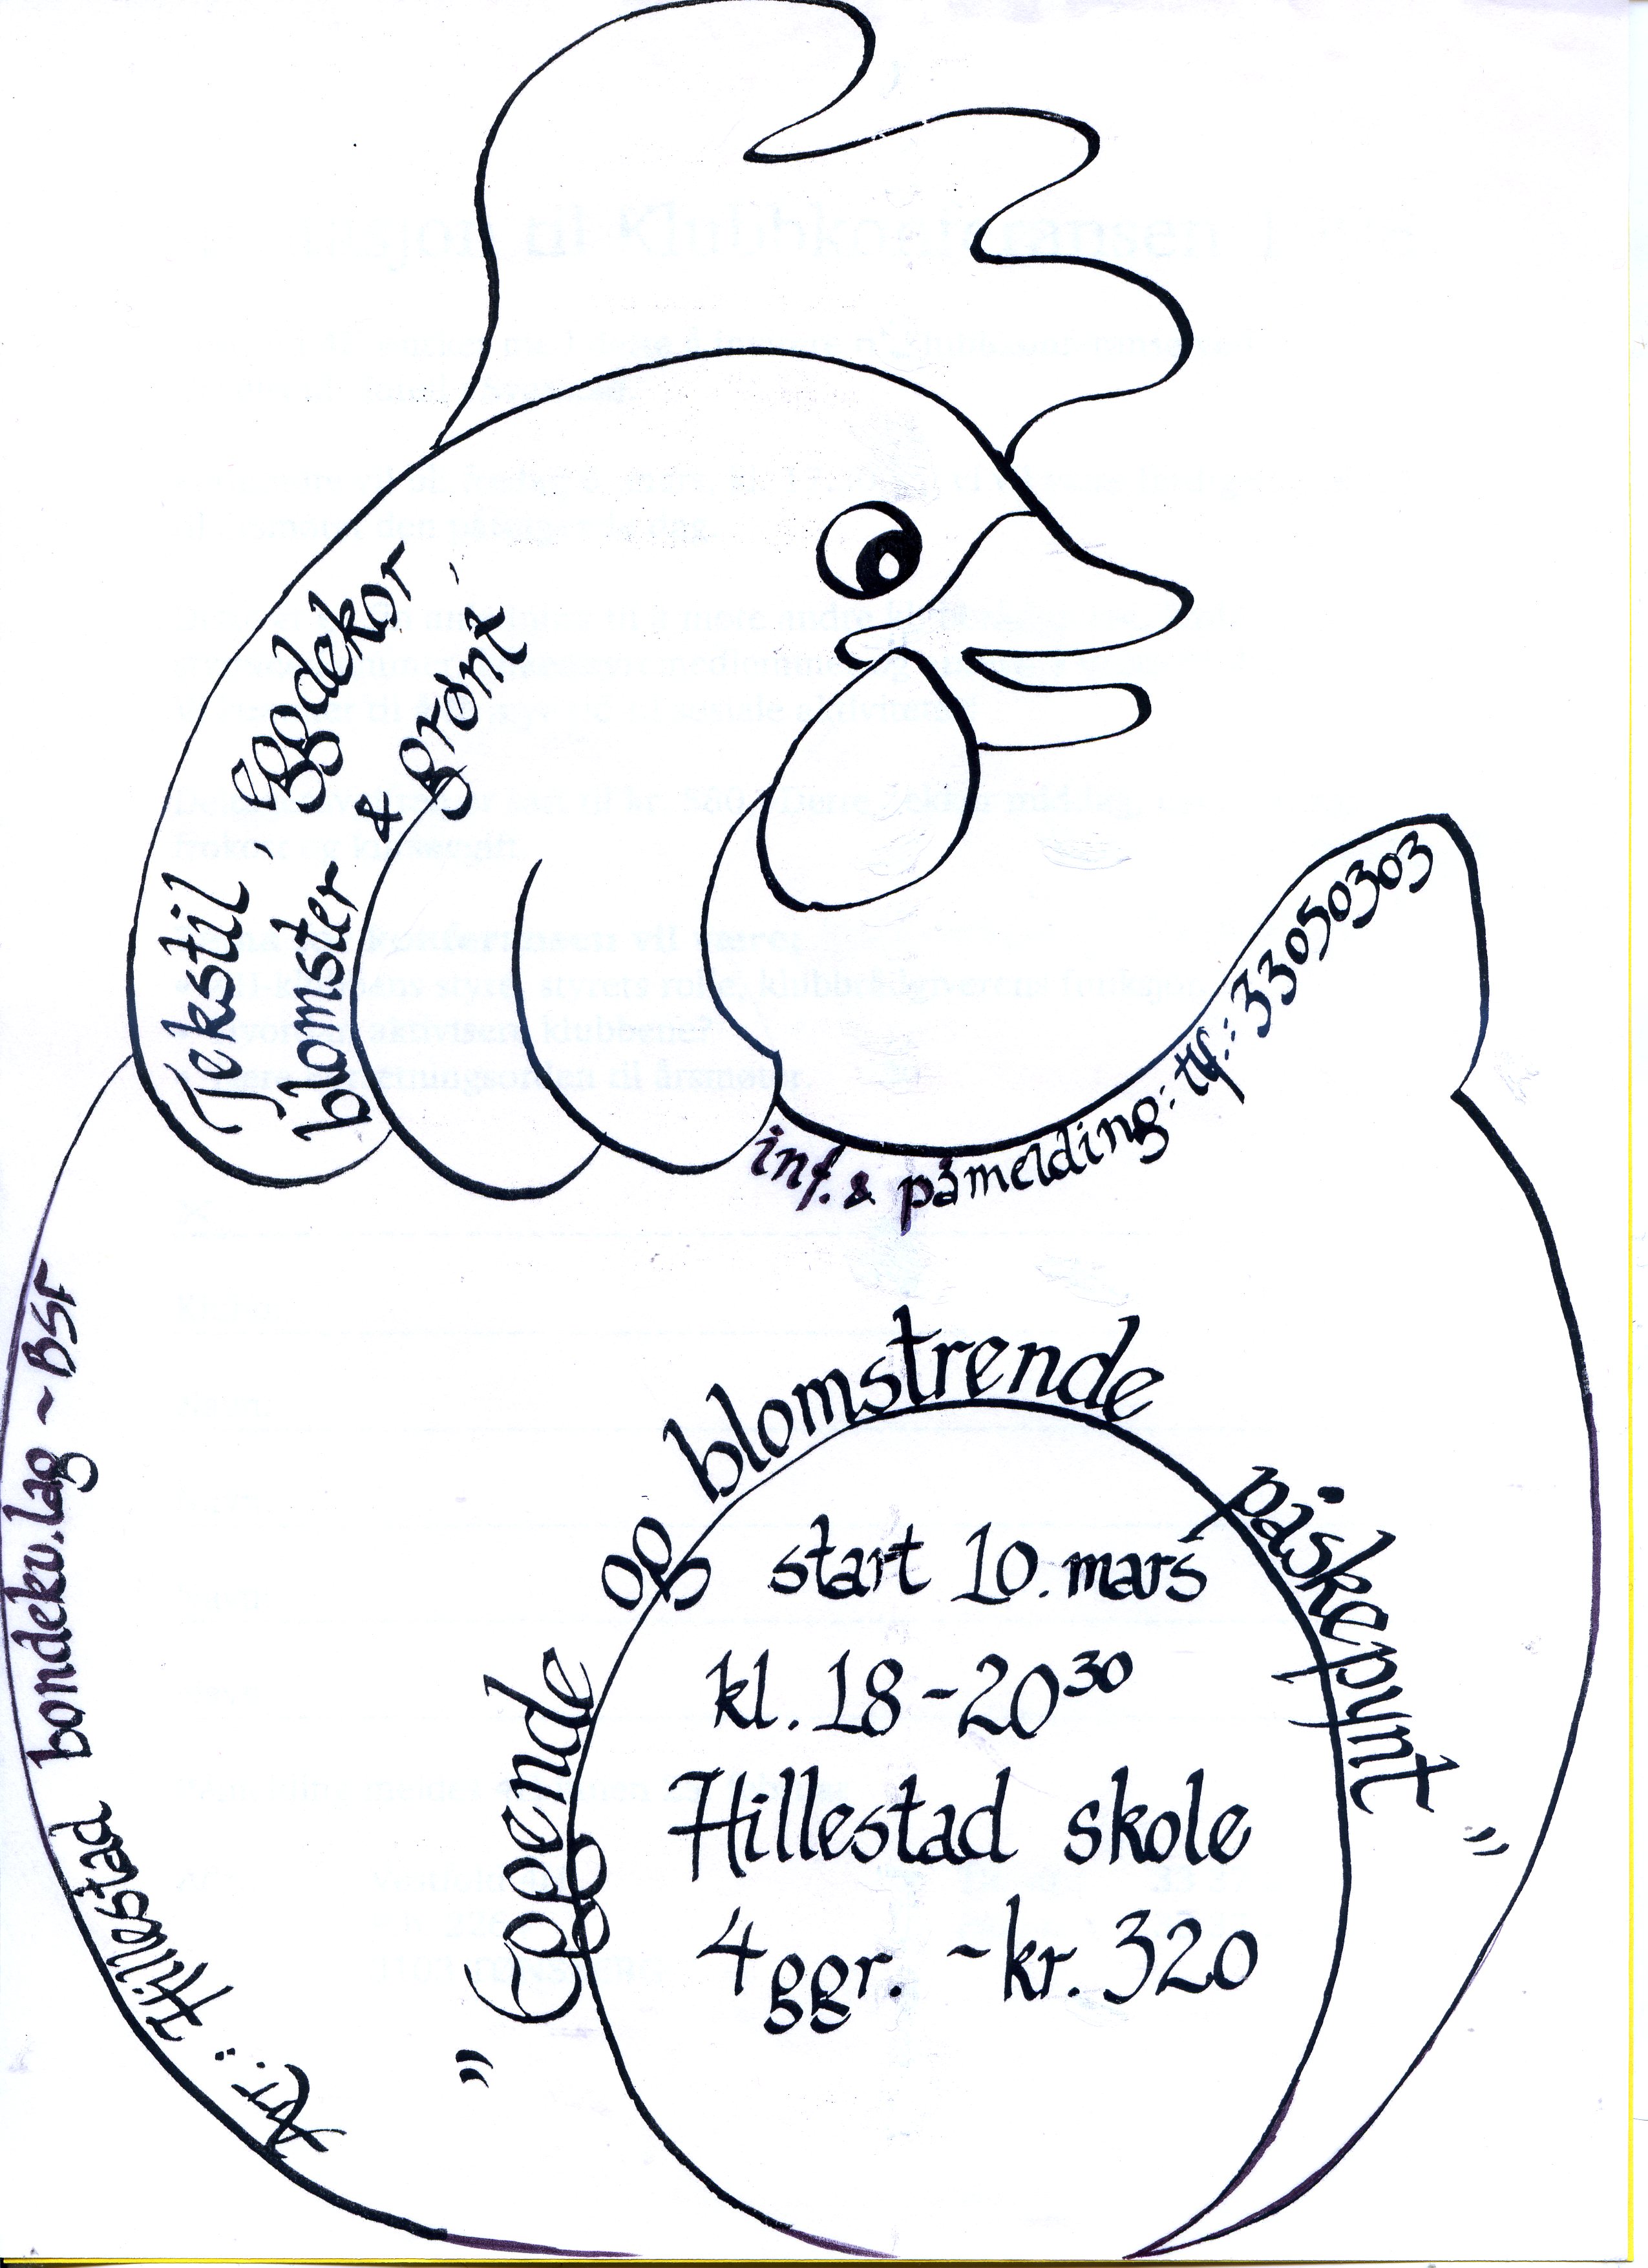 Tekstil, Eggdekor,
blomster & grønt
inf. & påmelding: tlf.: 33050303
" Eggende og blomstrende påskepynt "
start 10. mars
kl. 18-20³⁰
Hillestad skole
4 ggr. ~ kr. 320
Arr.: Hillestad bondekv.lag ~ BSF